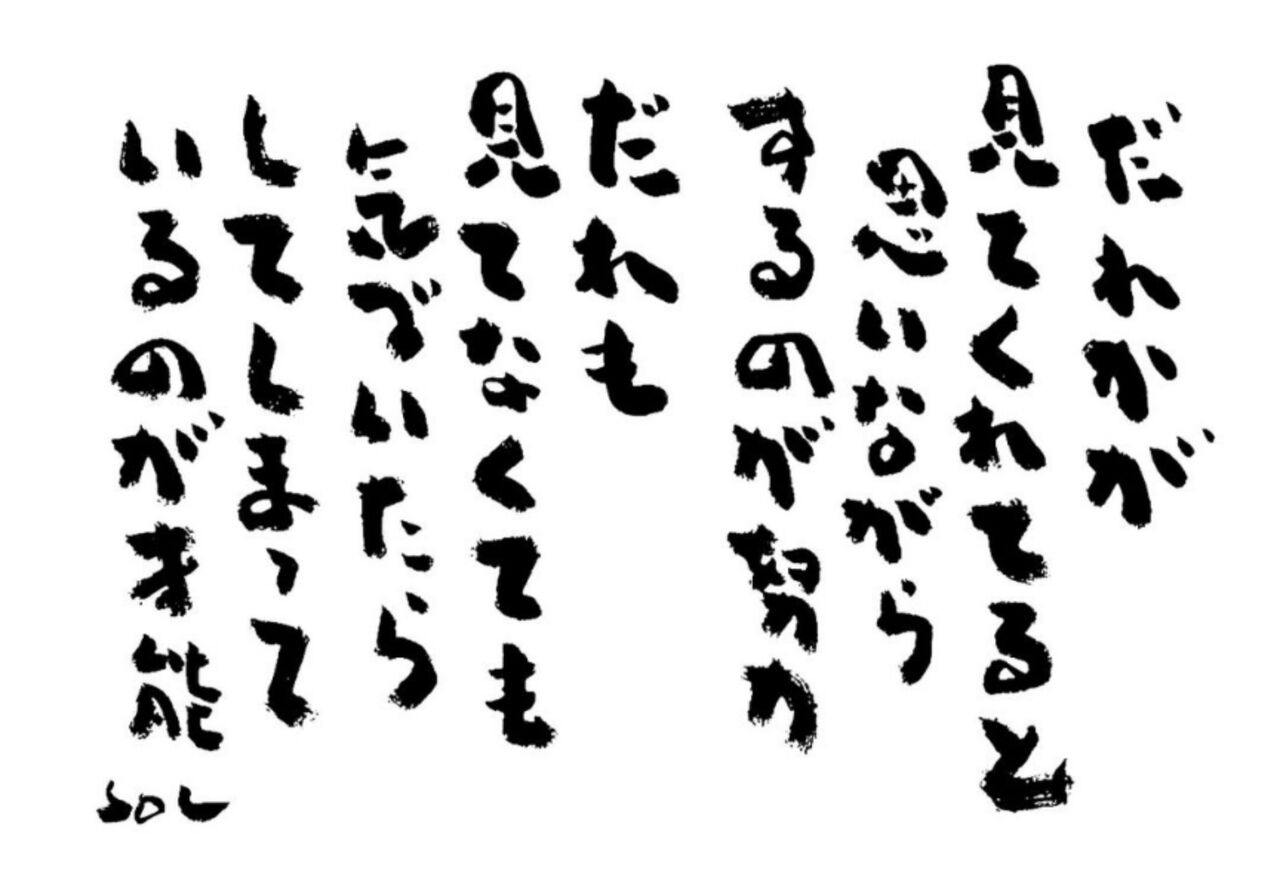 だれかが
見てくれてると
思いながら
するのが努力
だれも
見てなくても
気づいたら
してしまって
いるのが才能
SOL